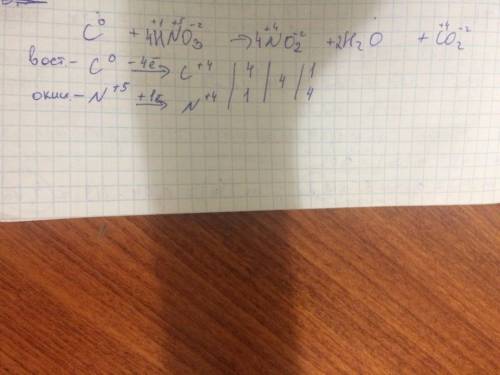 C⁰ + 4H⁺¹N⁺⁵O₃⁻² → 4N⁺⁴O₂⁻² + 2H₂O + C⁺⁴O₂⁻²
вост- C⁰ -4e̅→ C⁺⁴ | 4 | 4 | 1
окис- N⁺⁵ +1e̅→ N⁺⁴ | 1 | | 4